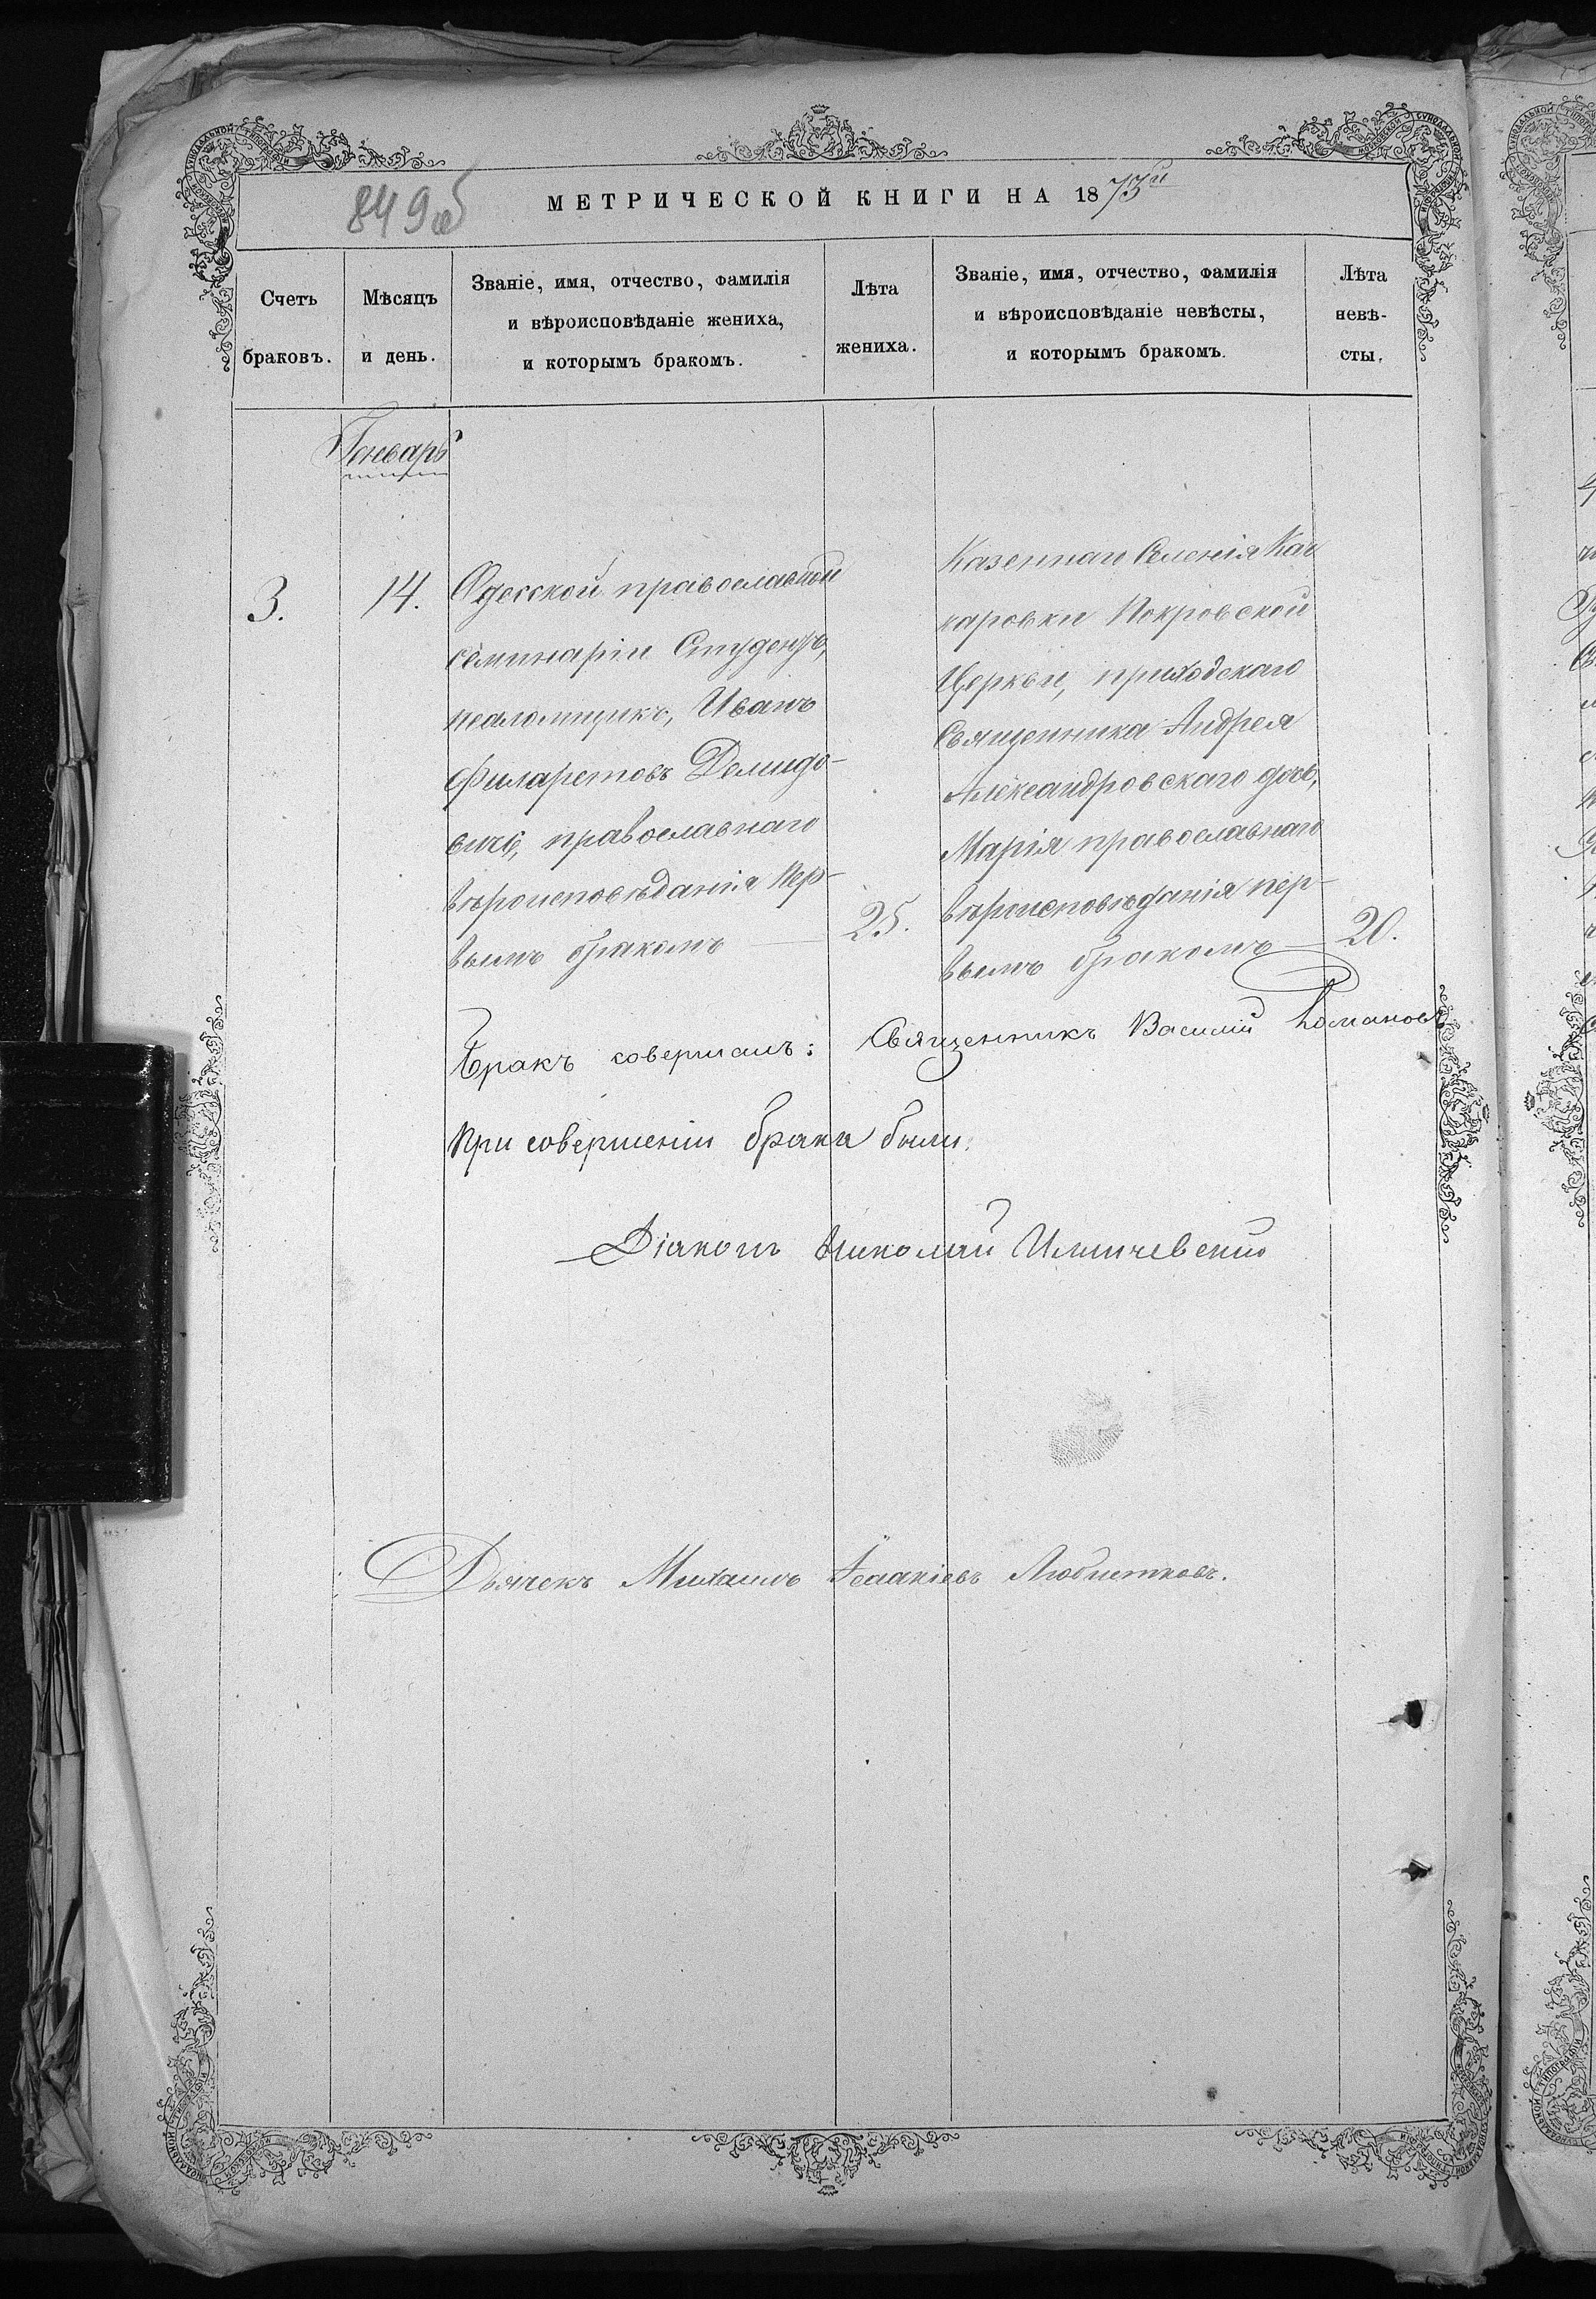 849об
МЕТРИЧЕСКОЙ КНИГИ НА 1873й
Счетъ браковъ.
Мѣсяцъ и день.
Званіе, имя, отчество, фамилія
и вѣроисповѣданіе жениха,
и которымъ бракомъ.
Лѣта жениха.
Званіе, имя, отчество, фамилія
и вѣроисповѣданіе невѣсты,
и которымъ бракомъ.
Лѣта невѣ-
сты.
Январь
3.
14.
Одесской православной
семинаріи Студентъ,
псаломщикъ, Иванъ
Филаретовъ Демидо-
вичъ, православнаго
вѣроисповѣданія пер-
вымъ бракомъ
25.
Казеннаго Селенія
Покровской
Церкви, приходскаго
Священника Андрея
Александровскаго дочь,
Марія православнаго
вѣроисповѣданія пер-
вымъ бракомъ
20.
Бракъ совершилъ: Священникъ Василій Романовъ
При совершеніи брака были:
Діаконъ Николай Ильичевскій
Дьячекъ Михаилъ Исаакіевъ